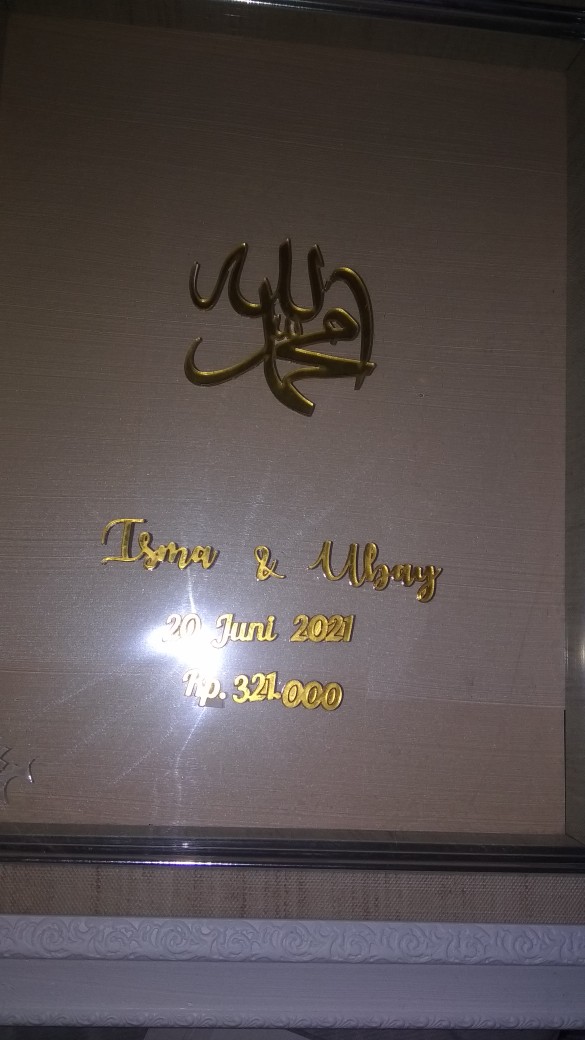 الله
محمد
Isma & Ubay
20 Juni 2021
Rp. 321.000